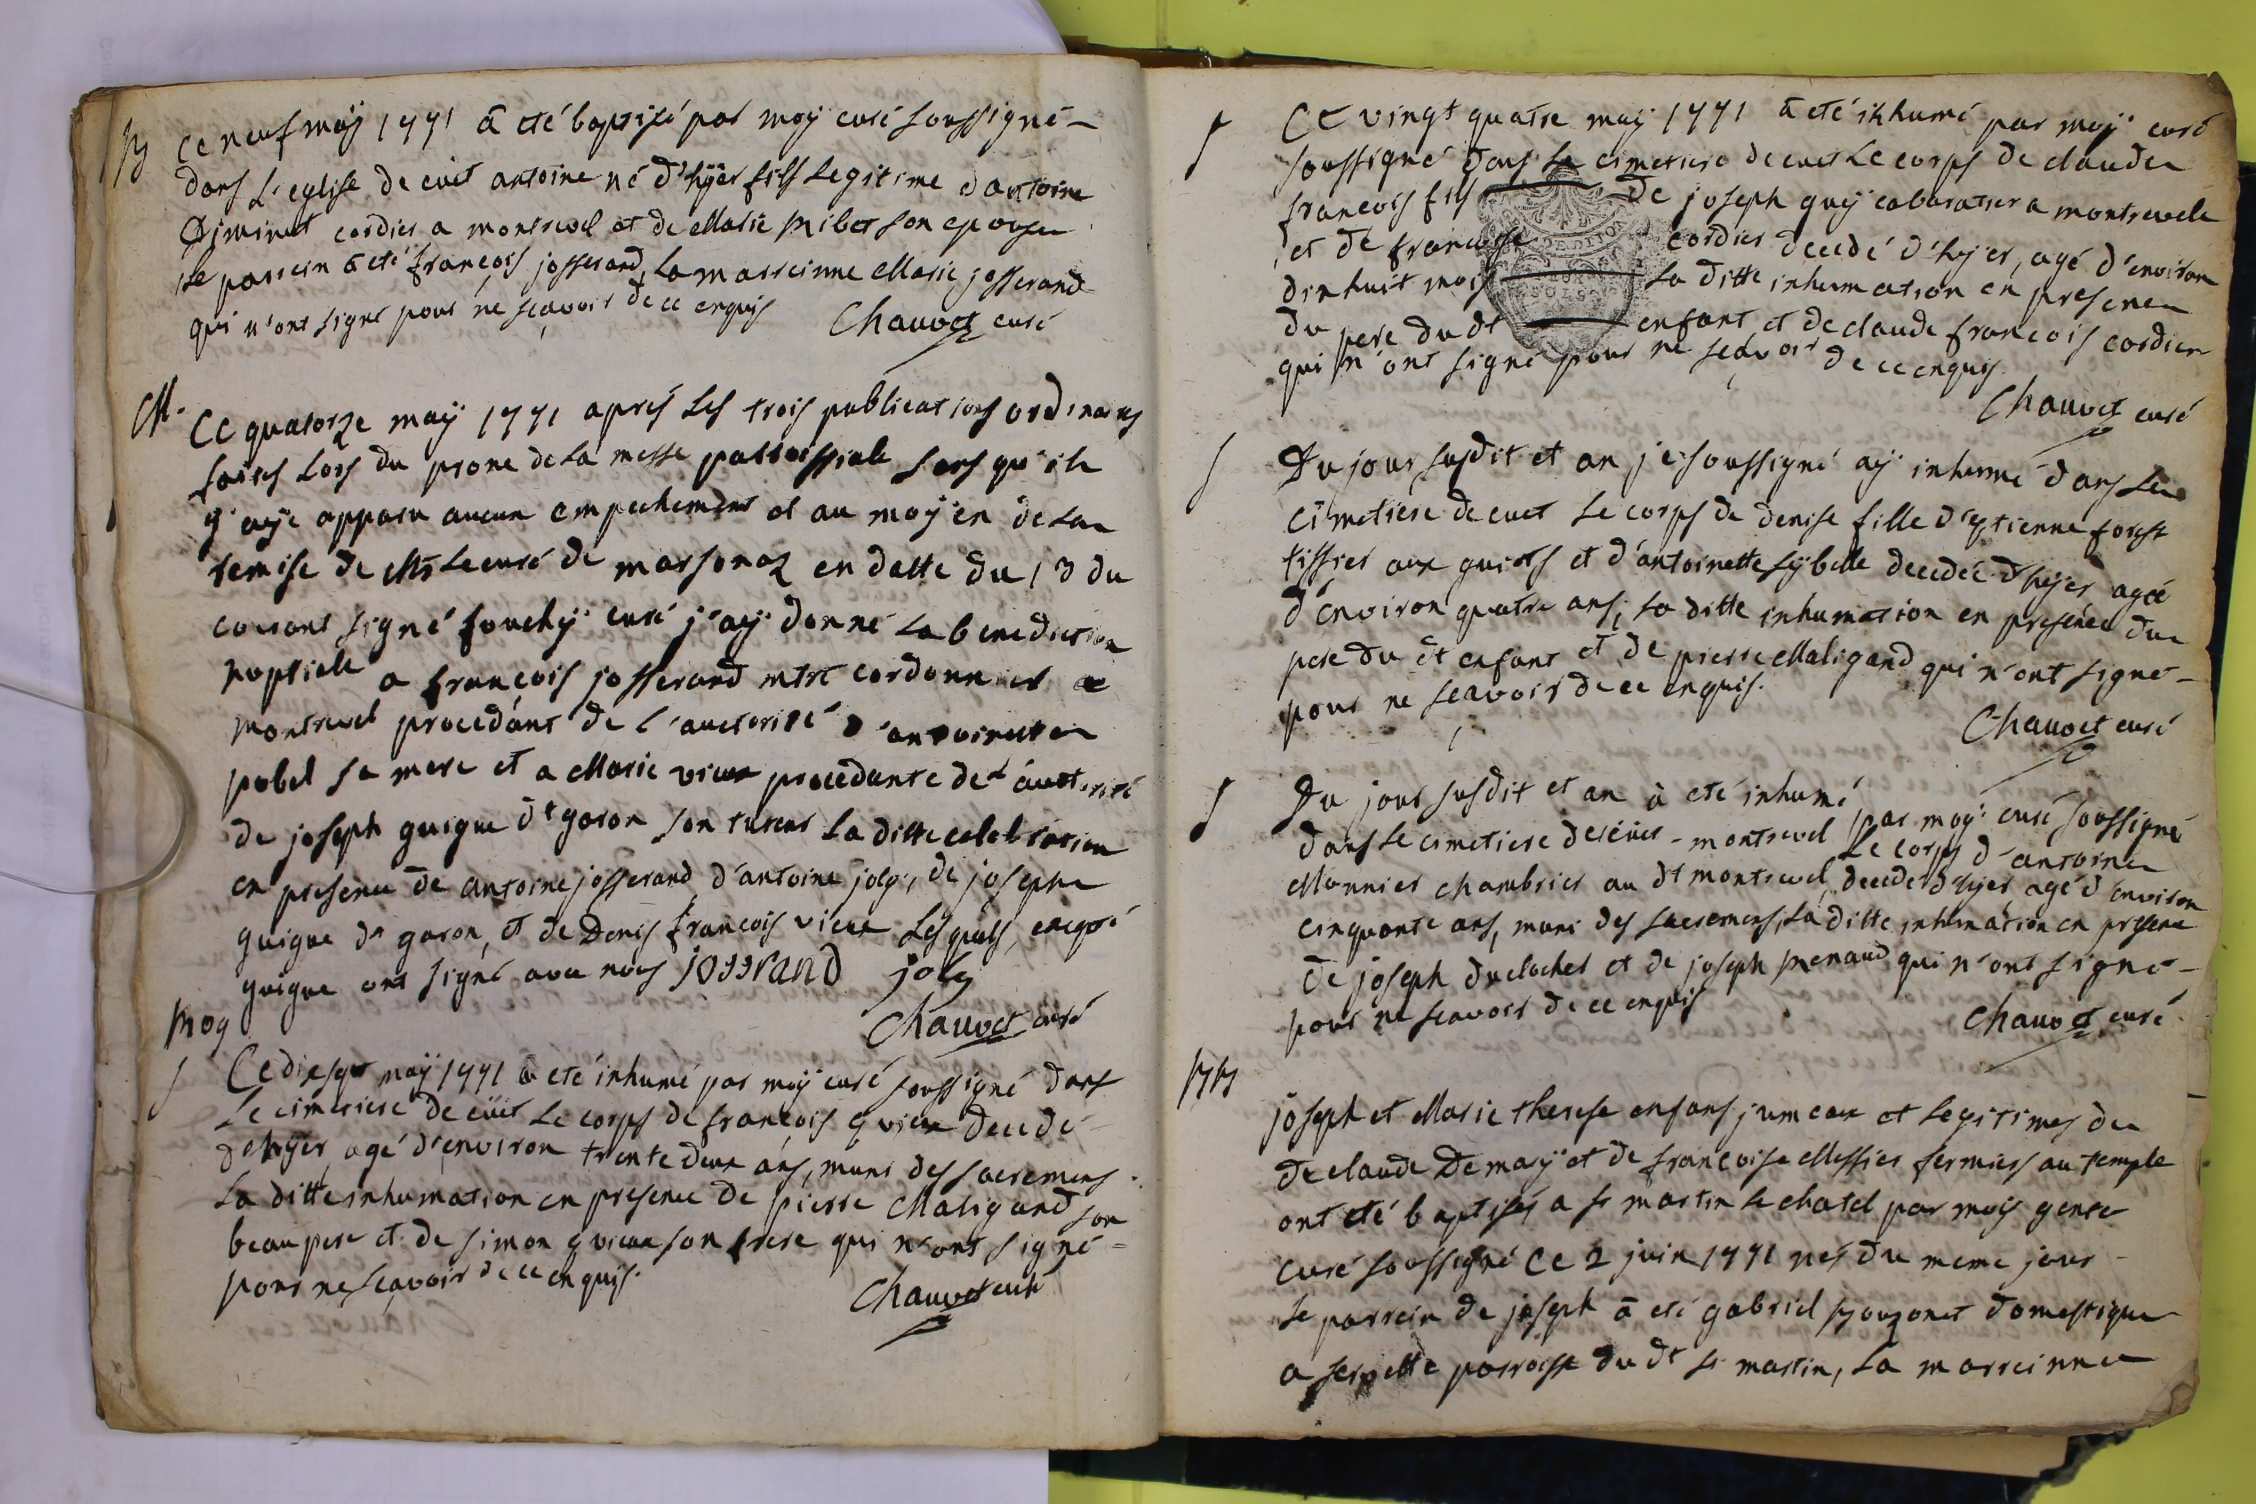 B
Ce neuf maÿ 1771 a eté baptisé par moÿ curé soussigné
dans l'eglise de cuet antoine né d'hÿer fils legitime d'antoine
cordier a montrevel et de Marie son epouse
le parrein a eté françois josserand, la marreinne Marie josserand
qui n'ont signé pour ne sçavoir de ce enquis Chauvet curé
M.
Ce quatorze maÿ 1771 aprés les trois publications ordinaires
faites lors du prone de la messe parroissiale sans qu'il
y aÿe apparu aucun empechement et au moÿen de la
remise de Mr le curé de marsonaz en datte du 13 du
courant signé fouchÿ curé j'aÿ donné la benediction
nuptiale a françois josserand mtre cordonnier a
montrevel procedant de l'auctorité d'antoinette
pobel sa mere et a Marie vieux procedante de l'auctorité
de joseph guigue dt garon son tuteur la ditte celebration
en presence de antoine josserand d'antoine joly, de joseph
guigue dt garon, et de Denis françois vieux lesquels, excepté
guigue ont signé avec nous josserand joly
Chauvet curé
S
Ce dixsept maÿ 1771 a eté inhumé par moÿ curé soussigné dans
le cimetiere de cüet le corps de françois decedé
d'hÿer, agé d'environ trente deux ans, muni des sacremens.
la ditte inhumation en presence de pierre Maligand son
beau pere et de simon son frere qui n'ont signé
pour ne sçavoir de ce enquis.
Chauvet curé
S
Ce vingt quatre maÿ 1771 a eté inhumé par moÿ curé
soussigné dans le cimetiere de cuet le corps de claude
francois fils de joseph guÿ cabaratier a montrevel
et de francoise cordier decedé d'hÿer, agé d'environ
dixhuit mois la ditte inhumation en presence
du pere du dt enfant et de claude francois cordier
qui n'ont signé pour ne sçavoir de ce enquis.
Chauvet curé
S
Du jour susdit et an je soussigné aÿ inhumé dans le
cimetiere de cuet le corps de denise fille d'etienne forest
tissier aux guiots et d'antoinette sÿbelle decedée d'hÿer agée
d'environ quatre ans, la ditte inhumation en presence du
pere du dt enfant et de pierre Maligand qui n'ont signé
pour ne sçavoir de ce enquis.
Chauvet curé
S
Du jour susdit et an à eté inhumé par moÿ curé soussigné
dans le cimetiere de cüet-montrevel le corps d'antoine
Monnier chambrier au dt montrevel, decedé d'hÿer agé d'environ
cinquante ans, muni des sacremens, la ditte inhumation en presence
de joseph duclocher et de joseph qui n'ont signé
pour ne sçavoir de ce enquis
Chauvet curé
BB
joseph et Marie therese enfans jumeaux et legitimes de
de claude Demaÿ et de françoise Messier fermiers au temple
ont eté baptisés a st martin le chatel par moÿ
curé soussigné ce 2 juin 1771 nés du meme jour
le parrein de joseph a eté gabriel domestique
a parroisse du dt st martin, la marreinne